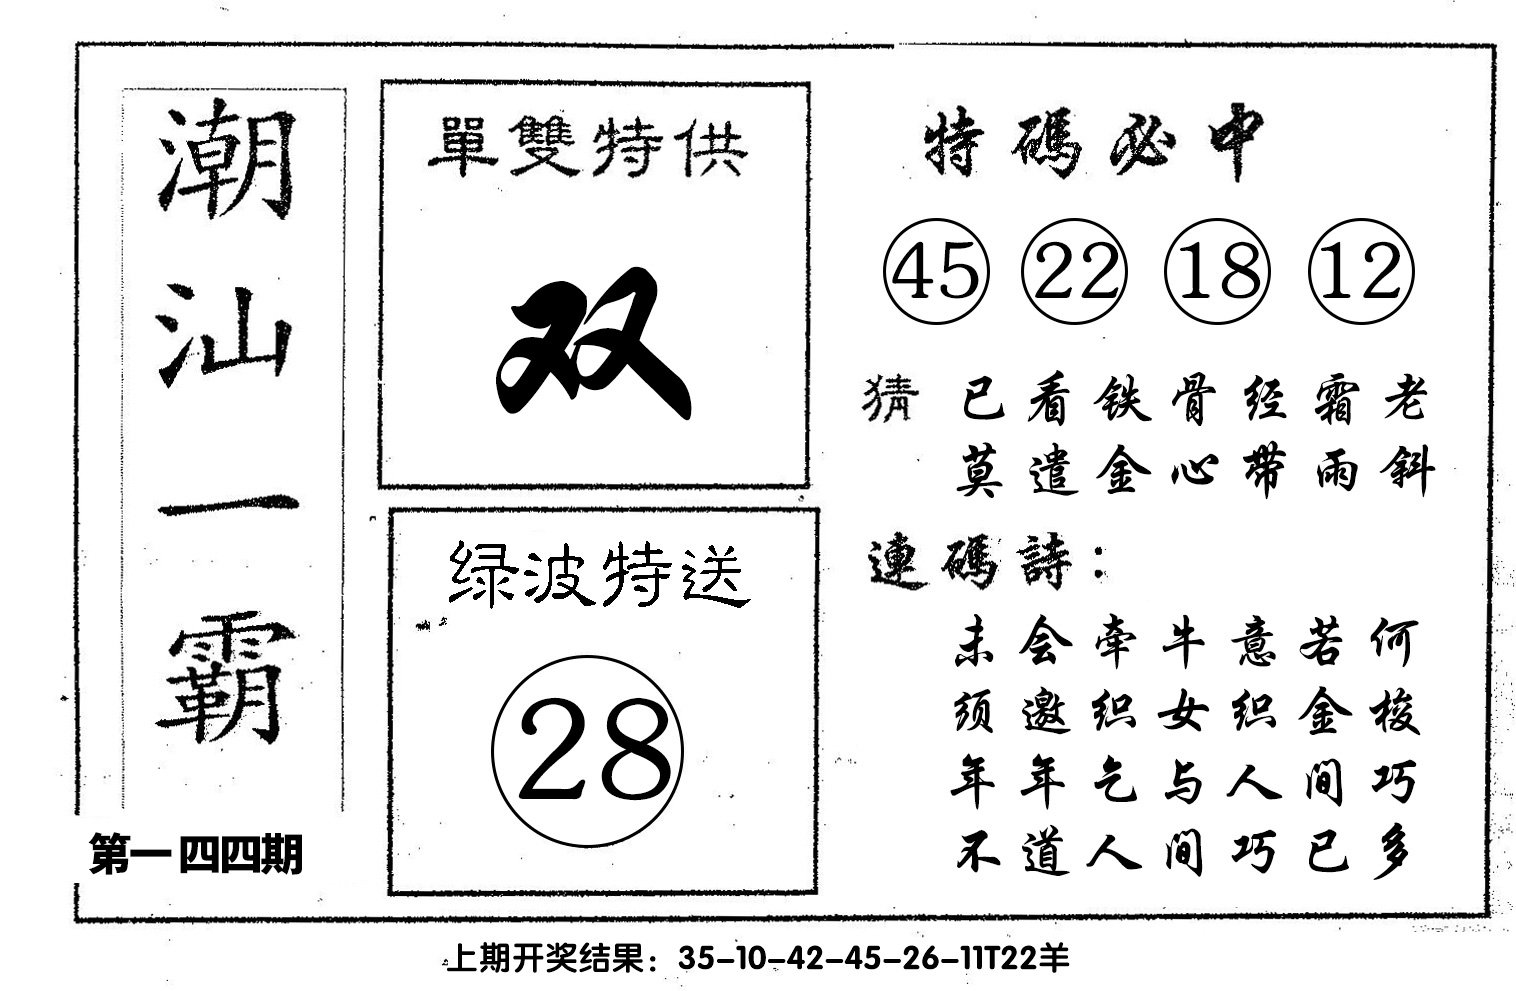 潮汕一霸
第一四四期
單雙特供
双
绿波特送
28
特碼必中
45 22 18 12
猜 已看铁骨经霜老
莫遣金心带雨斜
連碼詩：
未会牵牛意若何
须邀织女织金梭
年年乞与人间巧
不道人间巧已多
上期开奖结果：35-10-42-45-26-11T22羊